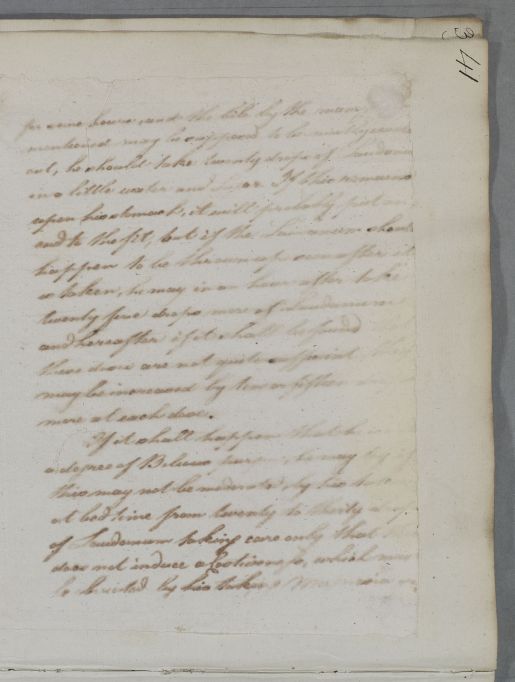 341
for some hours, and the bile by the means
mentioned may be supposed to be nearly evacu
out, he should take twenty drops of Laudanum
in a little water and Sugar. If this remains
upon his stomach, it will probably put an
end to the fit, but if the Laudanum should
happen to be thrown up soon after it
is taken, he may in an hour after take
twenty five drops more of Laudanum
and hereafter if it shall be found
these doses are not quite sufficient they
may be increased by ten or fifteen drops
more at each dose.
If it shall happen that he
a degree of Bilious he may try if
this may not be moderated by his
at bed time from twenty to thirty drops
of Laudanum taking care only that
does not induce a Costiveness, which must
be by his taking Magnesia